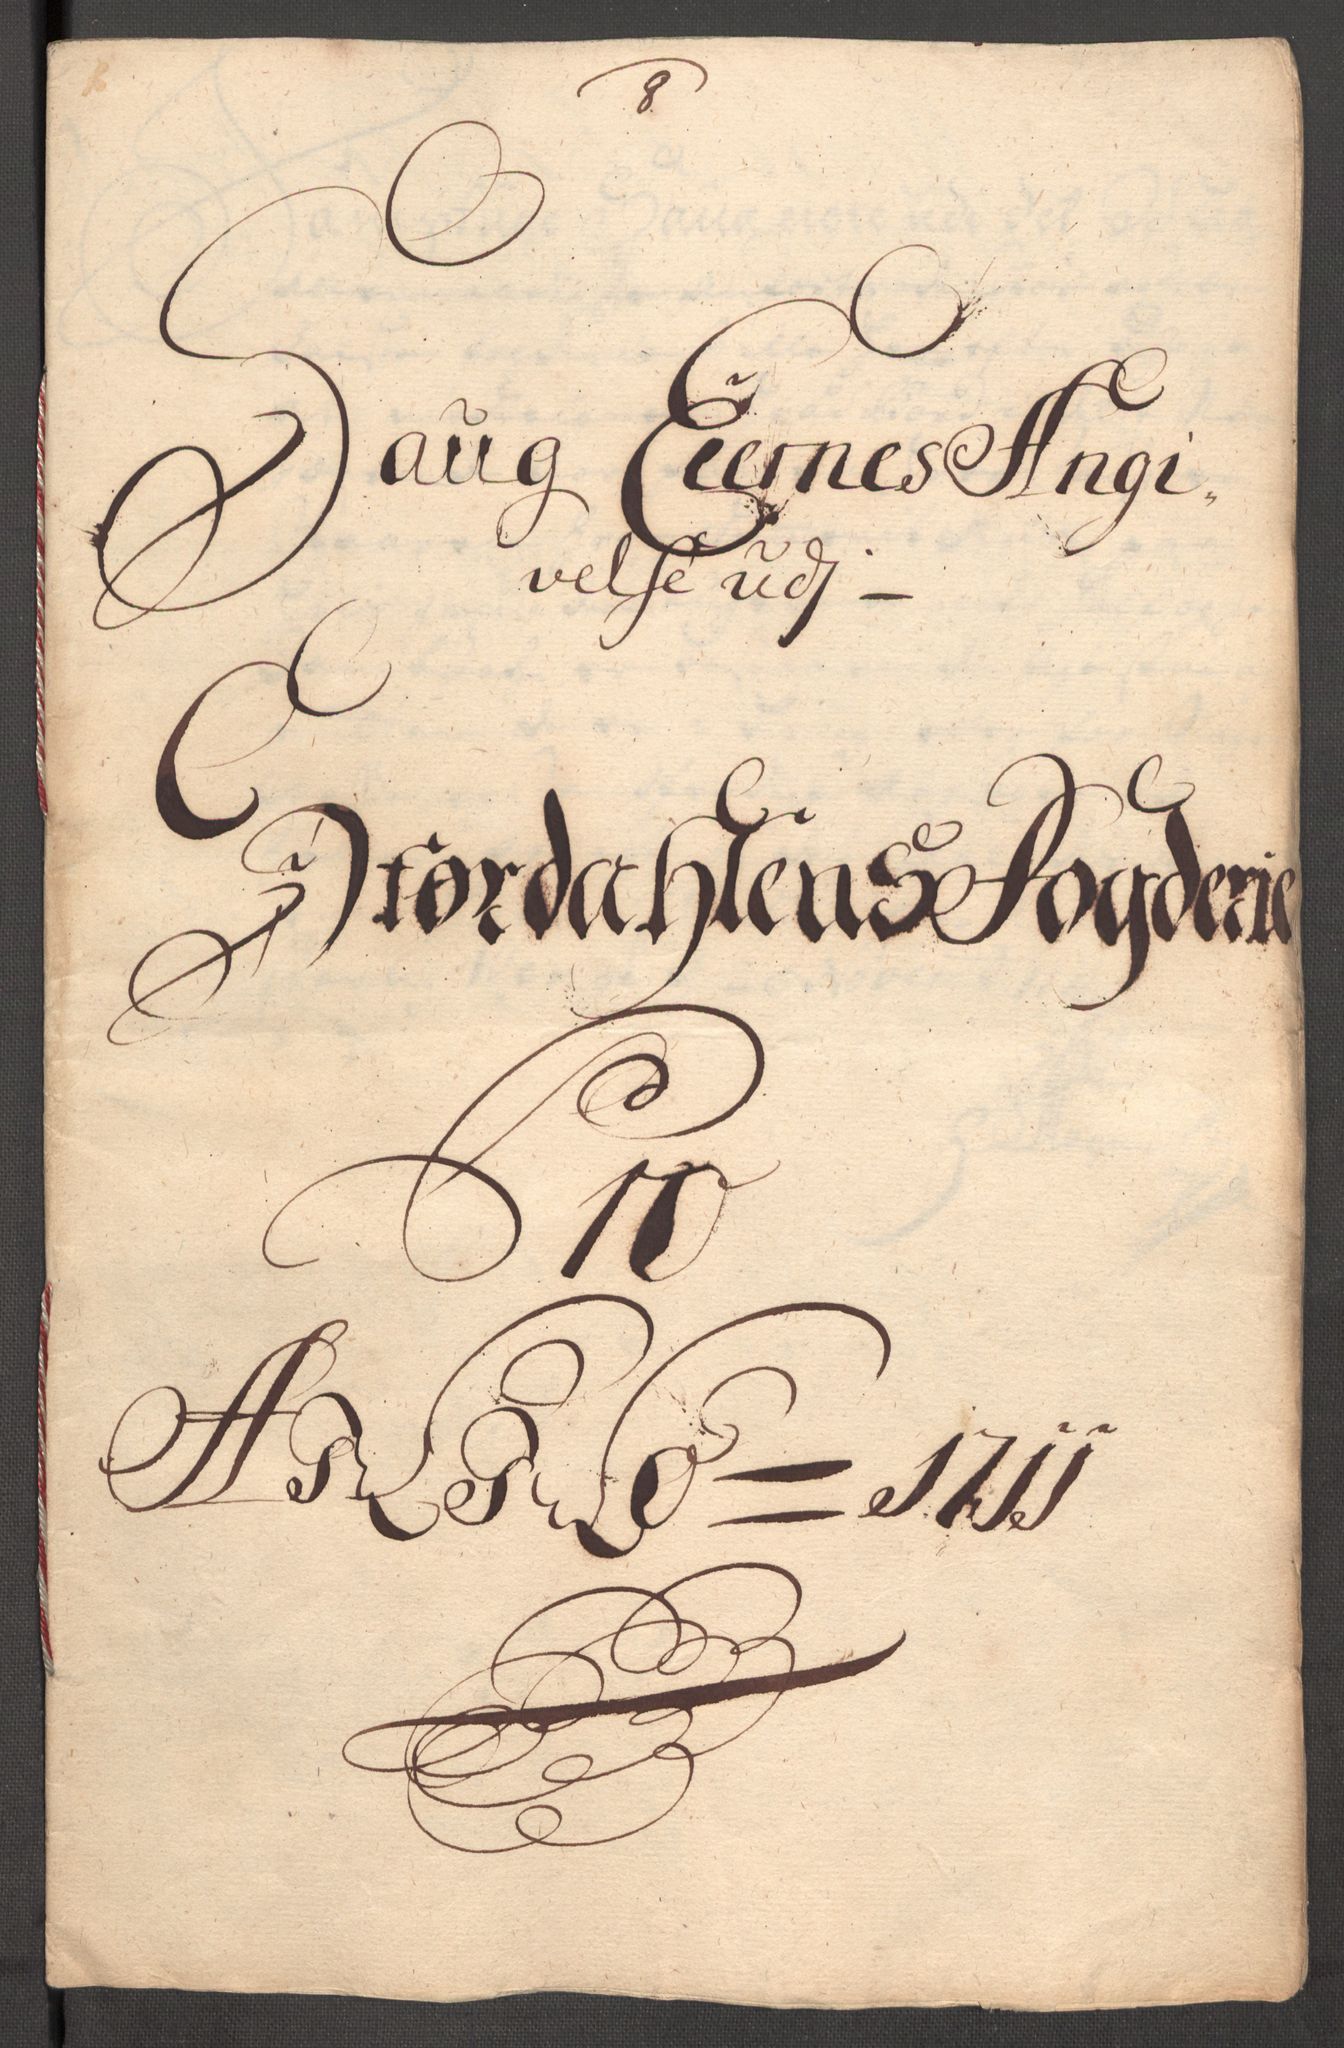 8
Saug Eiernes Angi„
velse udj —
Størdahlens Fogderie
Pro
ANNO = 1711